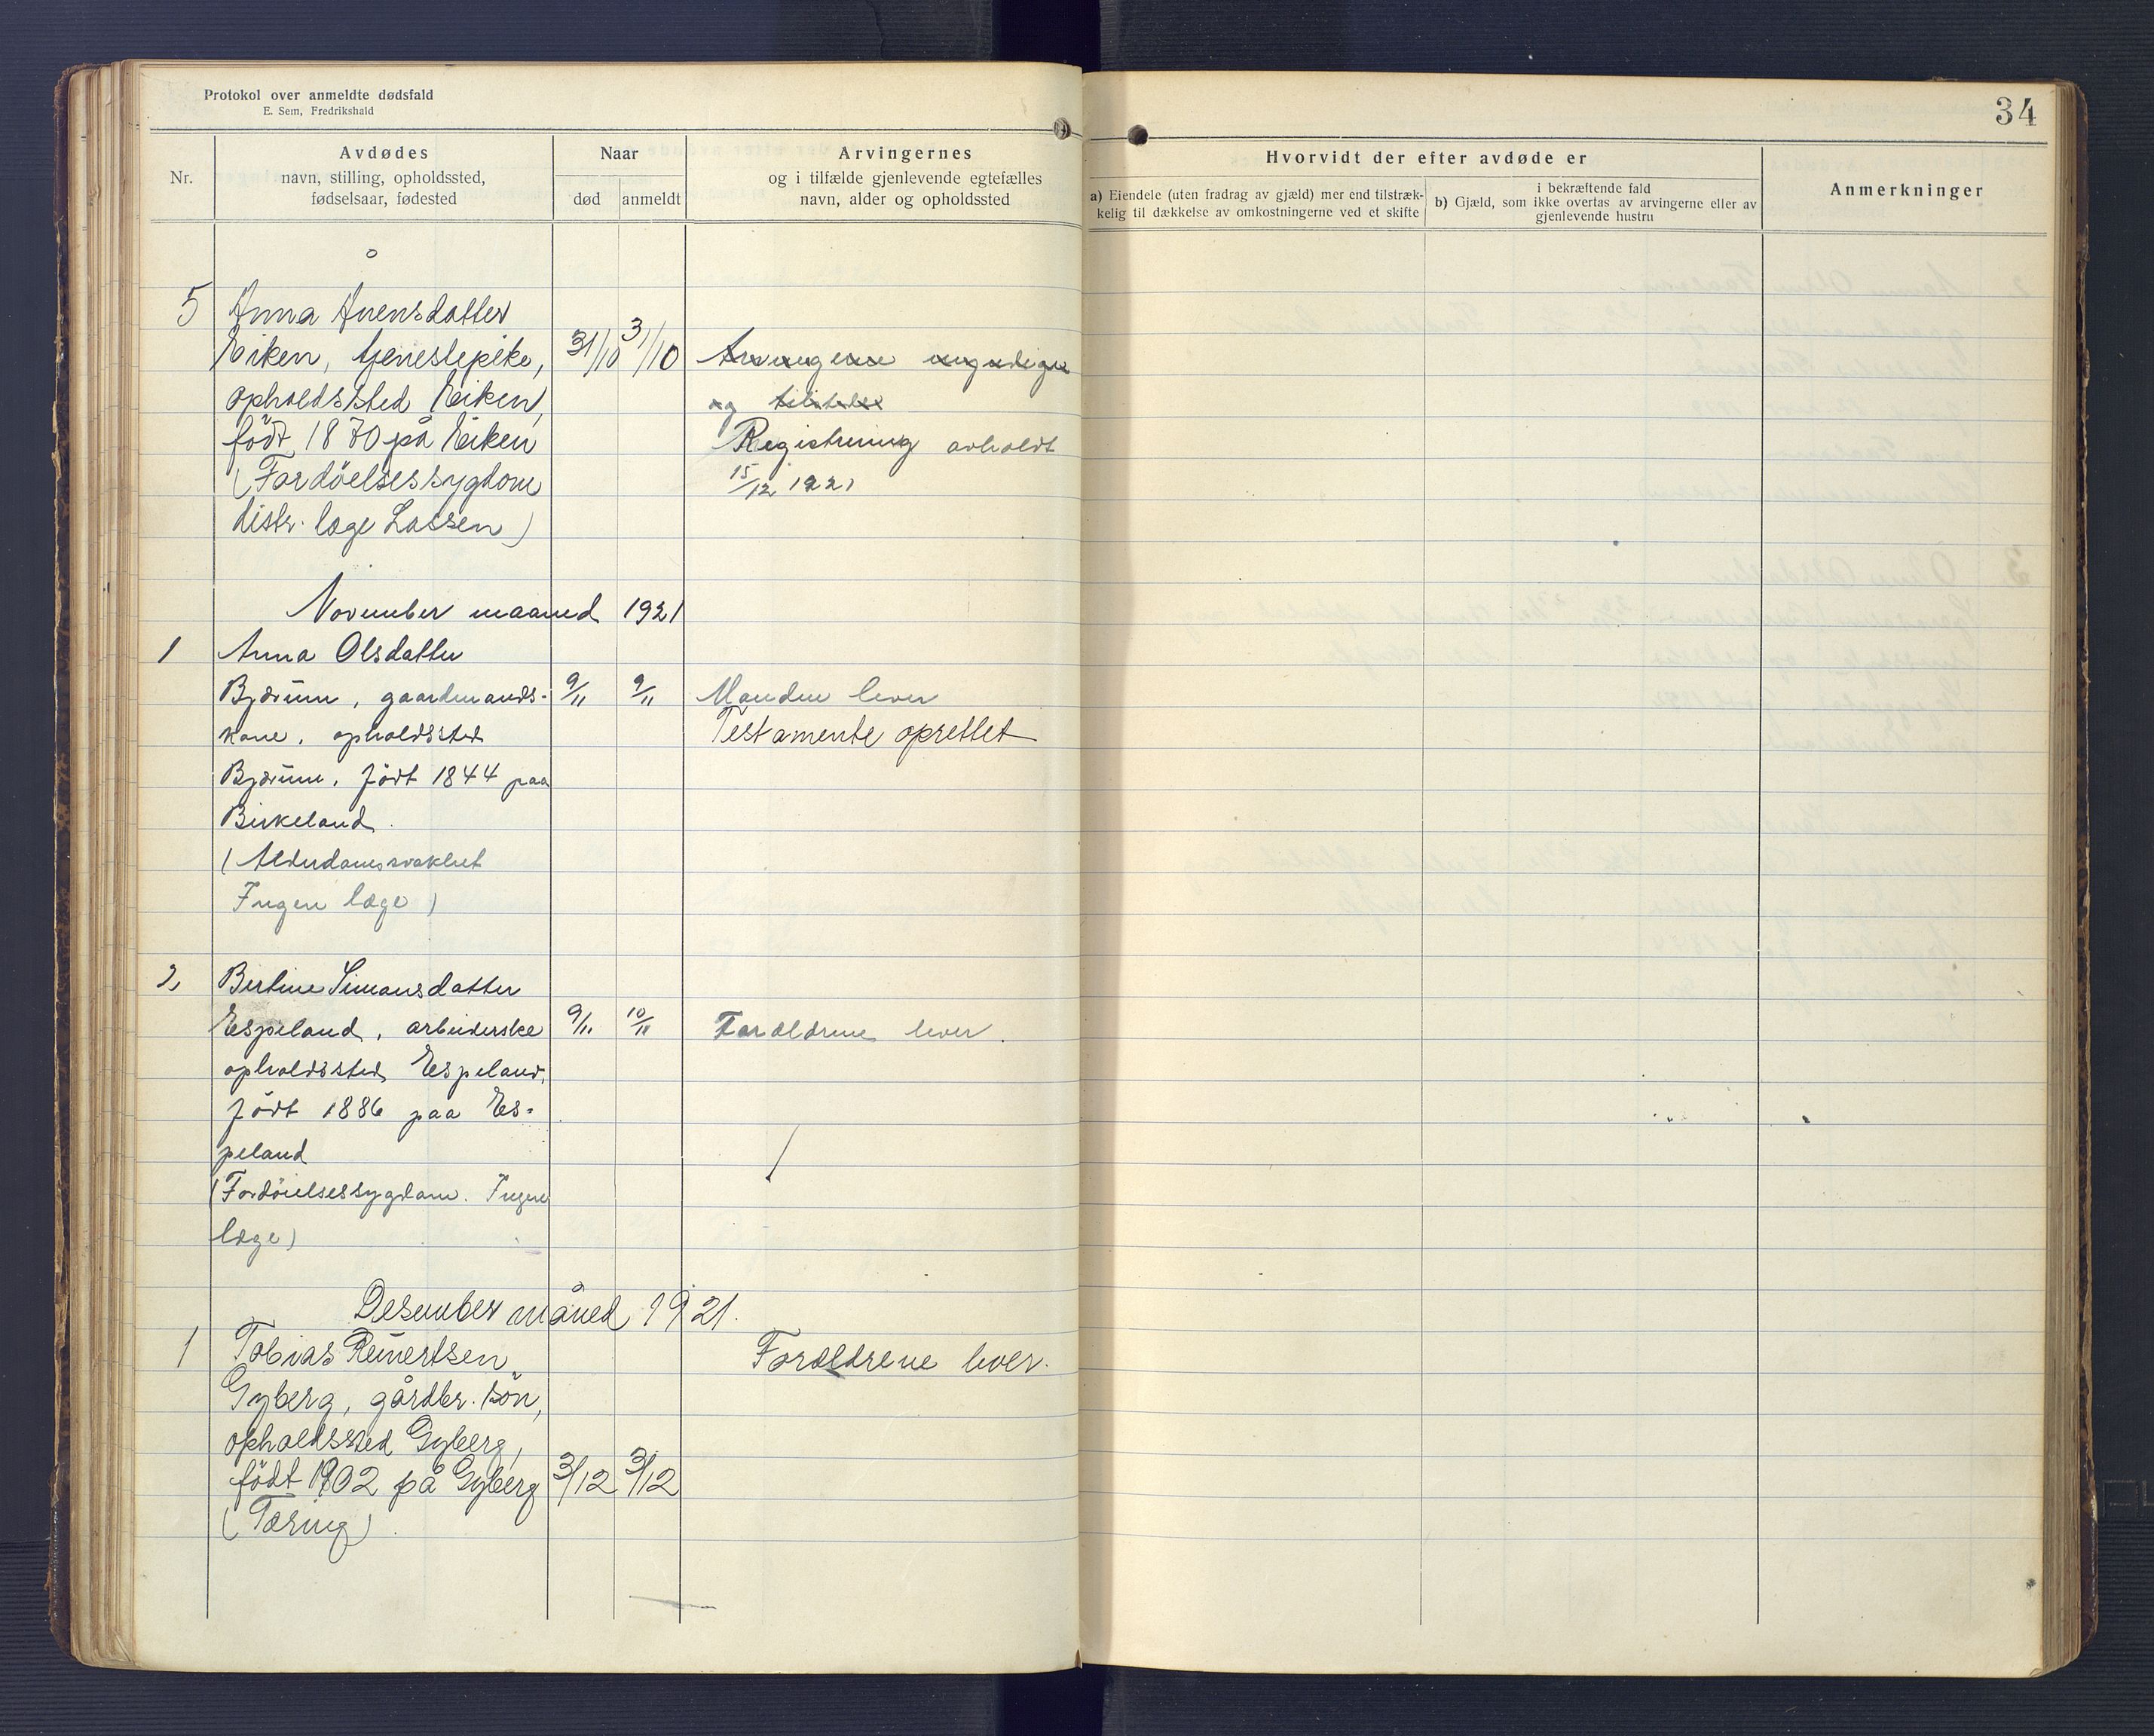 Protokol over anmeldte dødsfald
E. Sem, Fredrikshald
34
Nr.
Avdødes
navn, stilling, opholdssted,
fødselsaar, fødested
Naar
død
anmeldt
Arvingernes
og i tilfælde gjenlevende egtefælles
navn, alder og opholdssted
Hvorvidt der efter avdøde er
a) Eiendele (uten fradrag av gjæld) mer end tilstræk-
kelig til dækkelse av omkostningerne ved et skifte
i bekræftende fald
b) Gjæld, som ikke overtas av arvingerne eller av
gjenlevende hustru
Anmerkninger
5 Anna Anensdatter
Eiken, tjenestepike, 31/10 31/10 Arvingerne myndige
opholdssted Eiken, og tilstede
født 1870 på Eiken Registrering avholdt
(Fordöielsessygdom 15/12 1921
distr. læge Lassen)
November maaned 1921
1 Anna Olsdatter
Bjærum, gaardmands- 9/11 9/11 Manden lever
kone, opholdssted Testamente oprettet
Bjærum, født 1844 paa
Birkeland.
(Alderdomssvakhet
Ingen læge)
2 Bertine Simonsdatter
Espeland, arbeiderske 9/11 10/11 Forældrene lever.
opholdssted Espeland,
født 1886 paa Es-
peland
(Fordöielsessygdom. Ingen
læge)
Desember måned 1921.
1 Tobias Reinertsen Forældrene lever.
Gyberg, gårdbr. sön,
opholdssted Gyberg,
født 1902 på Gyberg 3/12 3/12
(Tæring).